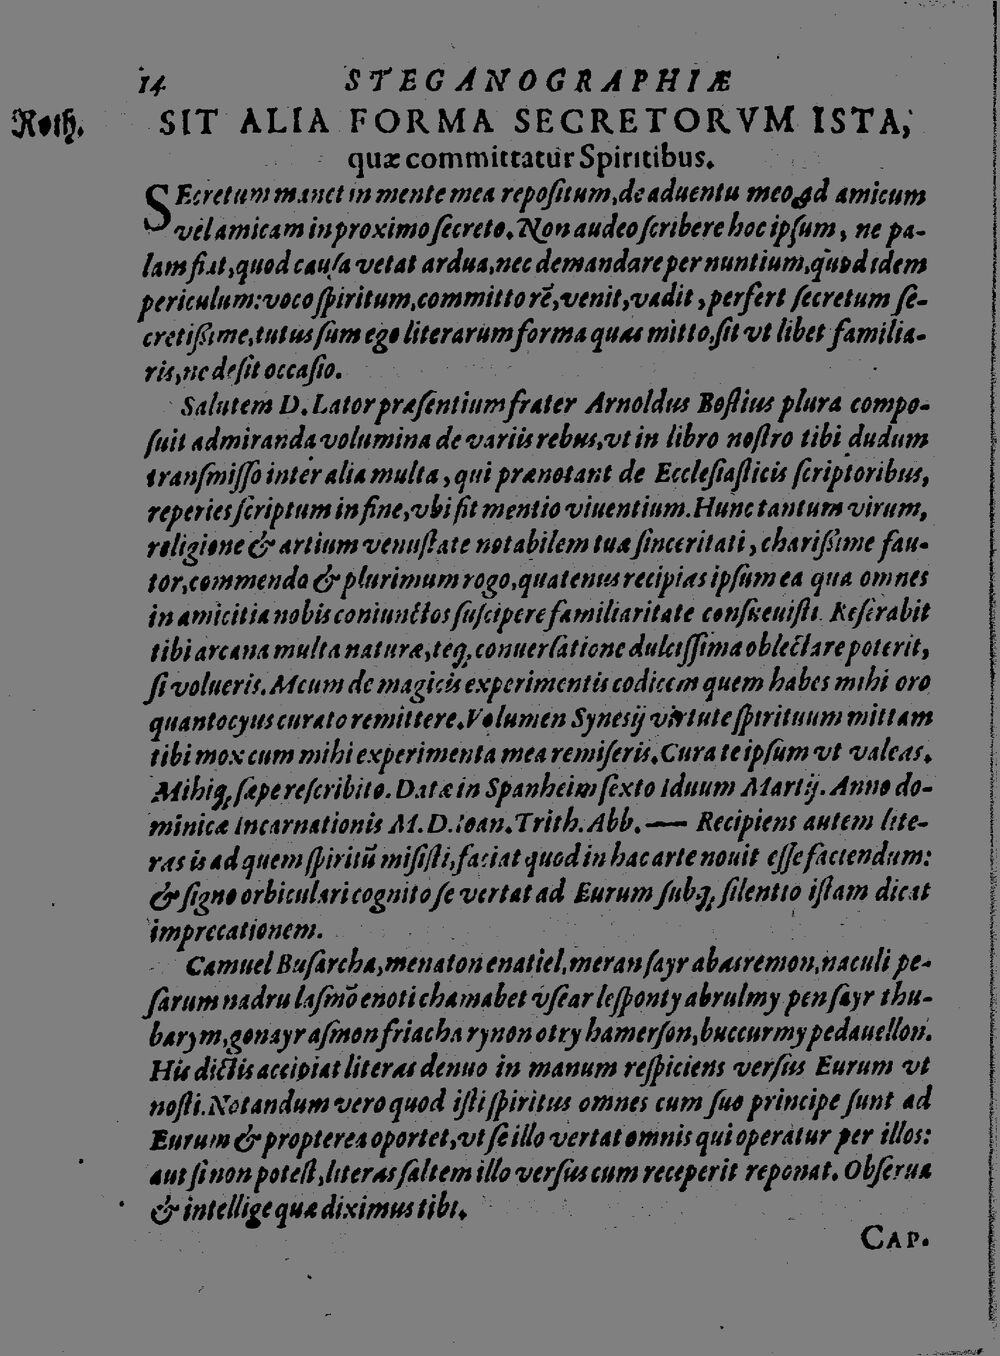 14 STEGANOGRAPHIÆ
Roth. SIT ALIA FORMA SECRETORVM ISTA,
quæ committatur Spiritibus.
SEcretum manet in mente mea repoſitum, de aduentu meo ad amicum
vel amicam in proximo ſecreto. Non audeo ſcribere hoc ipſum, ne pa-
lam fiat, quod cauſa vetat ardua, nec demandare per nuntium, quod idem
periculum: voco ſpiritum, committo rē, venit, vadit, perfert ſecretum ſe-
cretißime, tutus ſum ego literarum forma quas mitto, ſit vt libet familia-
ris, ne deſit occaſio.
Salutem D. Lator præſentium frater Arnoldus Boſtius plura compo-
ſuit admiranda volumina de variis rebus, vt in libro noſtro tibi dudum
tranſmiſſo inter alia multa, qui prænotant de Eccleſiaſticis ſcriptoribus,
reperies ſcriptum in fine, vbi fit mentio viuentium. Hunc tantum virum,
religione & artium venuſtate notabilem tuæ ſinceritati, charißime fau-
tor, commendo & plurimum rogo, quatenus recipias ipſum ea qua omnes
in amicitia nobis coniunctos ſuſcipere familiaritate conſueuiſti. Reſerabit
tibi arcana multa naturæ, teq; conuerſatione dulciſſima oblectare poterit,
ſi volueris. Meum de magicis experimentis codicem quem habes mihi oro
quantocyus curato remittere. Volumen Synesij virtute ſpirituum mittam
tibi mox cum mihi experimenta mea remiſeris. Cura te ipſum vt valeas.
Mihiq; ſæpe reſcribito. Datæ in Spanheim ſexto Iduum Martij. Anno do-
minicæ Incarnationis M. D. Ioan. Trith. Abb. — Recipiens autem lite-
ras is ad quem ſpiritū miſiſti, faciat quod in hac arte nouit eſſe faciendum:
& ſigno orbiculari cognito ſe vertat ad Eurum ſubq; ſilentio iſtam dicat
imprecationem.
Camuel Buſarcha, menaton enatiel, meran ſayr abasremon, naculi pe-
ſarum nadru laſmō enoti chamabet vſear leſponty abrulmy pen ſayr thu-
barym, gonayr aſmon friacha rynon otry hamerſon, buccurmy pedauellon.
His dictis accipiat literas denuo in manum reſpiciens verſus Eurum vt
noſti. Notandum vero quod iſti ſpiritus omnes cum ſuo principe ſunt ad
Eurum & propterea oportet, vt ſe illo vertat omnis qui operatur per illos:
aut ſi non poteſt, literas ſaltem illo verſus cum receperit reponat. Obſerua
& intellige quæ diximus tibi.
CAP.